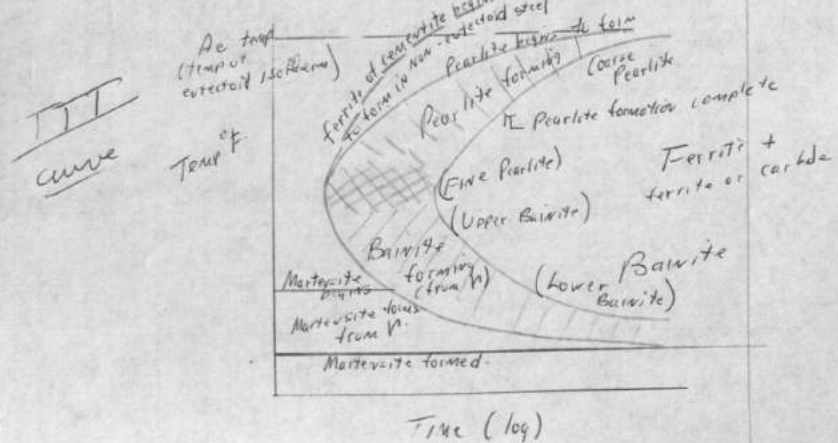 TTT
curve
Ae temp
(temp of
eutectoid isotherm)
Temp °F
ferrite of cementite begins
to form in non-eutectoid steel
Pearlite begins to form
Pearlite forming
Coarse
Pearlite
Pearlite formation complete
(Fine Pearlite)
(Upper Bainite)
Ferrite +
ferrite or carbide
Bainite
forming
(from γ)
(Lower Bainite
Bainite)
Martensite
begins
Martensite forms
from γ.
Martensite formed.
Time (log)